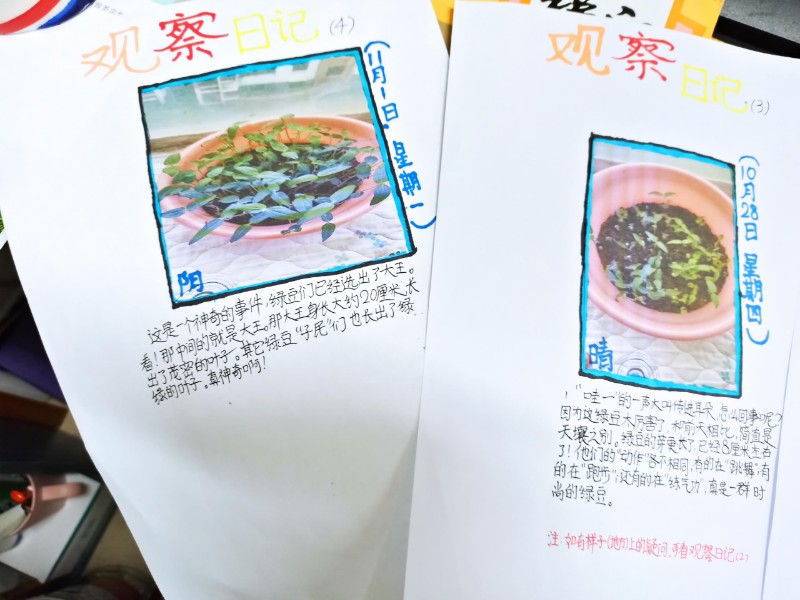 观察日记(4)
(11月1日. 星期一)
阳
这是一个神奇的事件,绿豆们已经选出了大王。
看!那中间的就是大王。那大王身长大约20厘米,长
出了茂密的叶子。其它绿豆“子民”们也长出了绿
绿的叶子。真神奇啊!
观察日记.(3)
(10月28日 星期四)
晴
“哇—”的一声大叫传进耳朵,怎么回事呢?
因为这绿豆太厉害了,和前天相比,简直是
天壤之别。绿豆的芽更大了,已经8厘米左右
了!他们的“动作”各不相同,有的在“跳舞”;有
的在“跑步”;还有的在“练气功”,真是一群时
尚的绿豆。
注:如有样子(地点)上的疑问,可看观察日记(2)